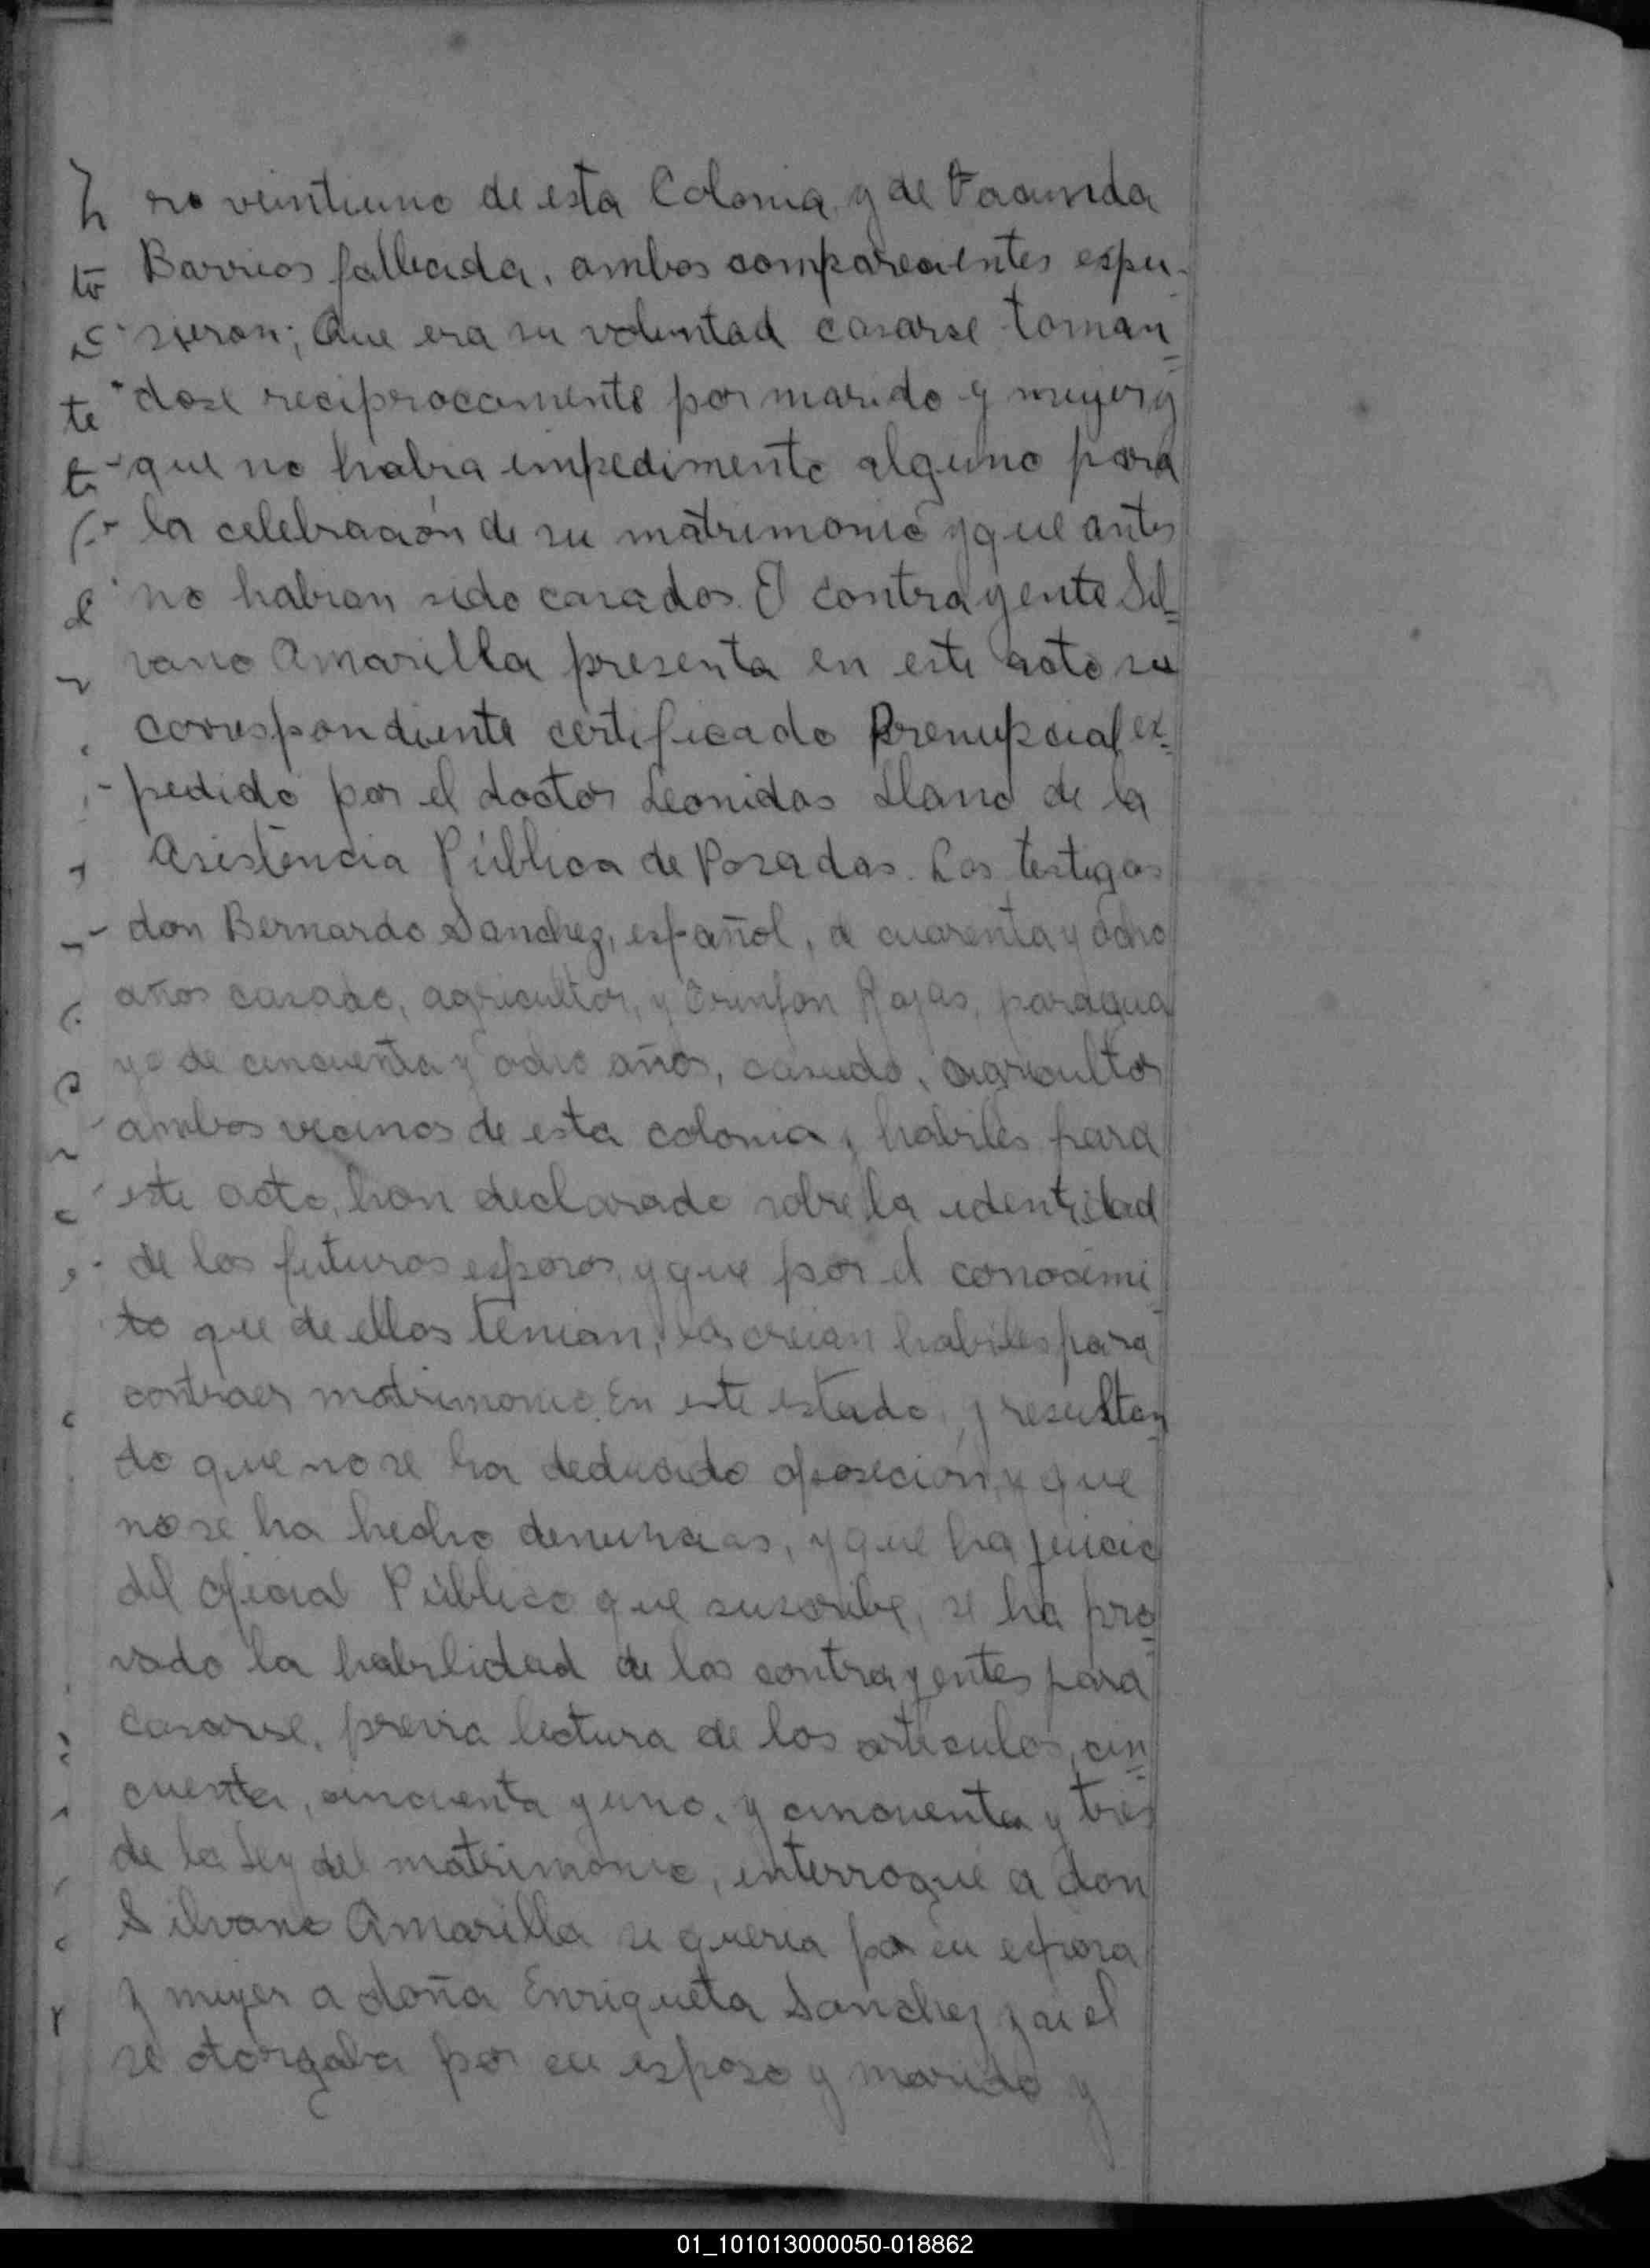 ro veintiuno de esta Colonia, y de Facunda
Barrios fallecida, ambos comparecientes espu-
sieron; Que era su voluntad casarse toman=
dose reciprocamente por marido y mujer, y
que no habia impedimento alguno para
la celebración de su matrimonio y que antes
no habian sido casados. El contrayente Sil=
vano Amarilla presenta en este acto su
correspondiente certificado Prenupcial ex=
pedido por el doctor Leonidas Llano de la
Asistencia Pública de Posadas. Los testigos
don Bernardo Sanchez, español, de cuarenta y ocho
años casado, agricultor, y Rojas, paragua
yo de cincuenta y ocho años, casado, agricultor
ambos vecinos de esta colonia, habiles para
este acto, han declarado sobre la identidad
de los futuros esposos, y que por el conocimi
to que de ellos tenian, los creian habiles para
contraer matrimonio. En este estado, y resultan
do que no se ha deducido oposicion, y que
no se ha hecho denuncias, y que ha juicio
del Oficial Público que suscribe, se ha pro=
vado la habilidad de los contrayentes para
casarse, previa lectura de los articulos, cin=
cuenta, cincuenta y uno, y cincuenta y tres
de la Ley del matrimonio, interrogué a don
Silvano Amarilla si queria por su esposa
y mujer a doña Enriqueta Sanchez y si el
se otorgaba por su esposo y marido y
01_101013000050-018862